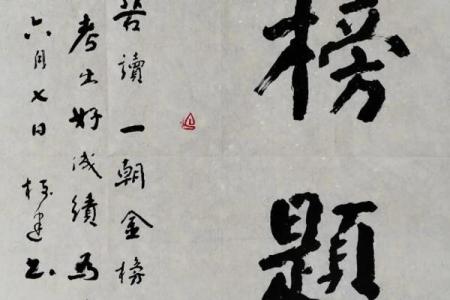 榜題
苦讀一朝金榜
考出好成績為
六月七日 建書